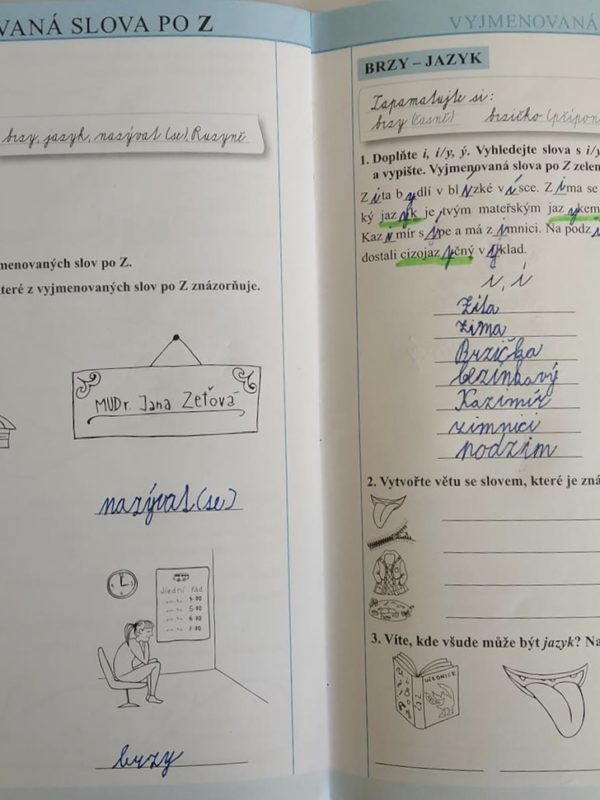 VANÁ SLOVA PO Z
brzy, jazyk, nazývat (se), Ruzyně
menovaných slov po Z.
teré z vyjmenovaných slov po Z znázorňuje.
MUDr. Jana Zeťová
nazývat (se)
Jízdní řád
brzy
VYJMENOVANÁ
BRZY – JAZYK
Zapamatujte si:
brzy (časně) brzičko (přípon
1. Doplňte i, i/y, ý. Vyhledejte slova s i/y
a vypište. Vyjmenovaná slova po Z zelen
Zita bydlí v blízké vísce. Zima se
ký jazyk je tvým mateřským jazykem
Kazimír sípe a má zimnici. Na podzi
dostali cizojazyčný výklad.
i, í
Zita
zima
Brzička
Kazimír
zimnici
podzim
2. Vytvořte větu se slovem, které je zná
3. Víte, kde všude může být jazyk? Na
UČEBNICE